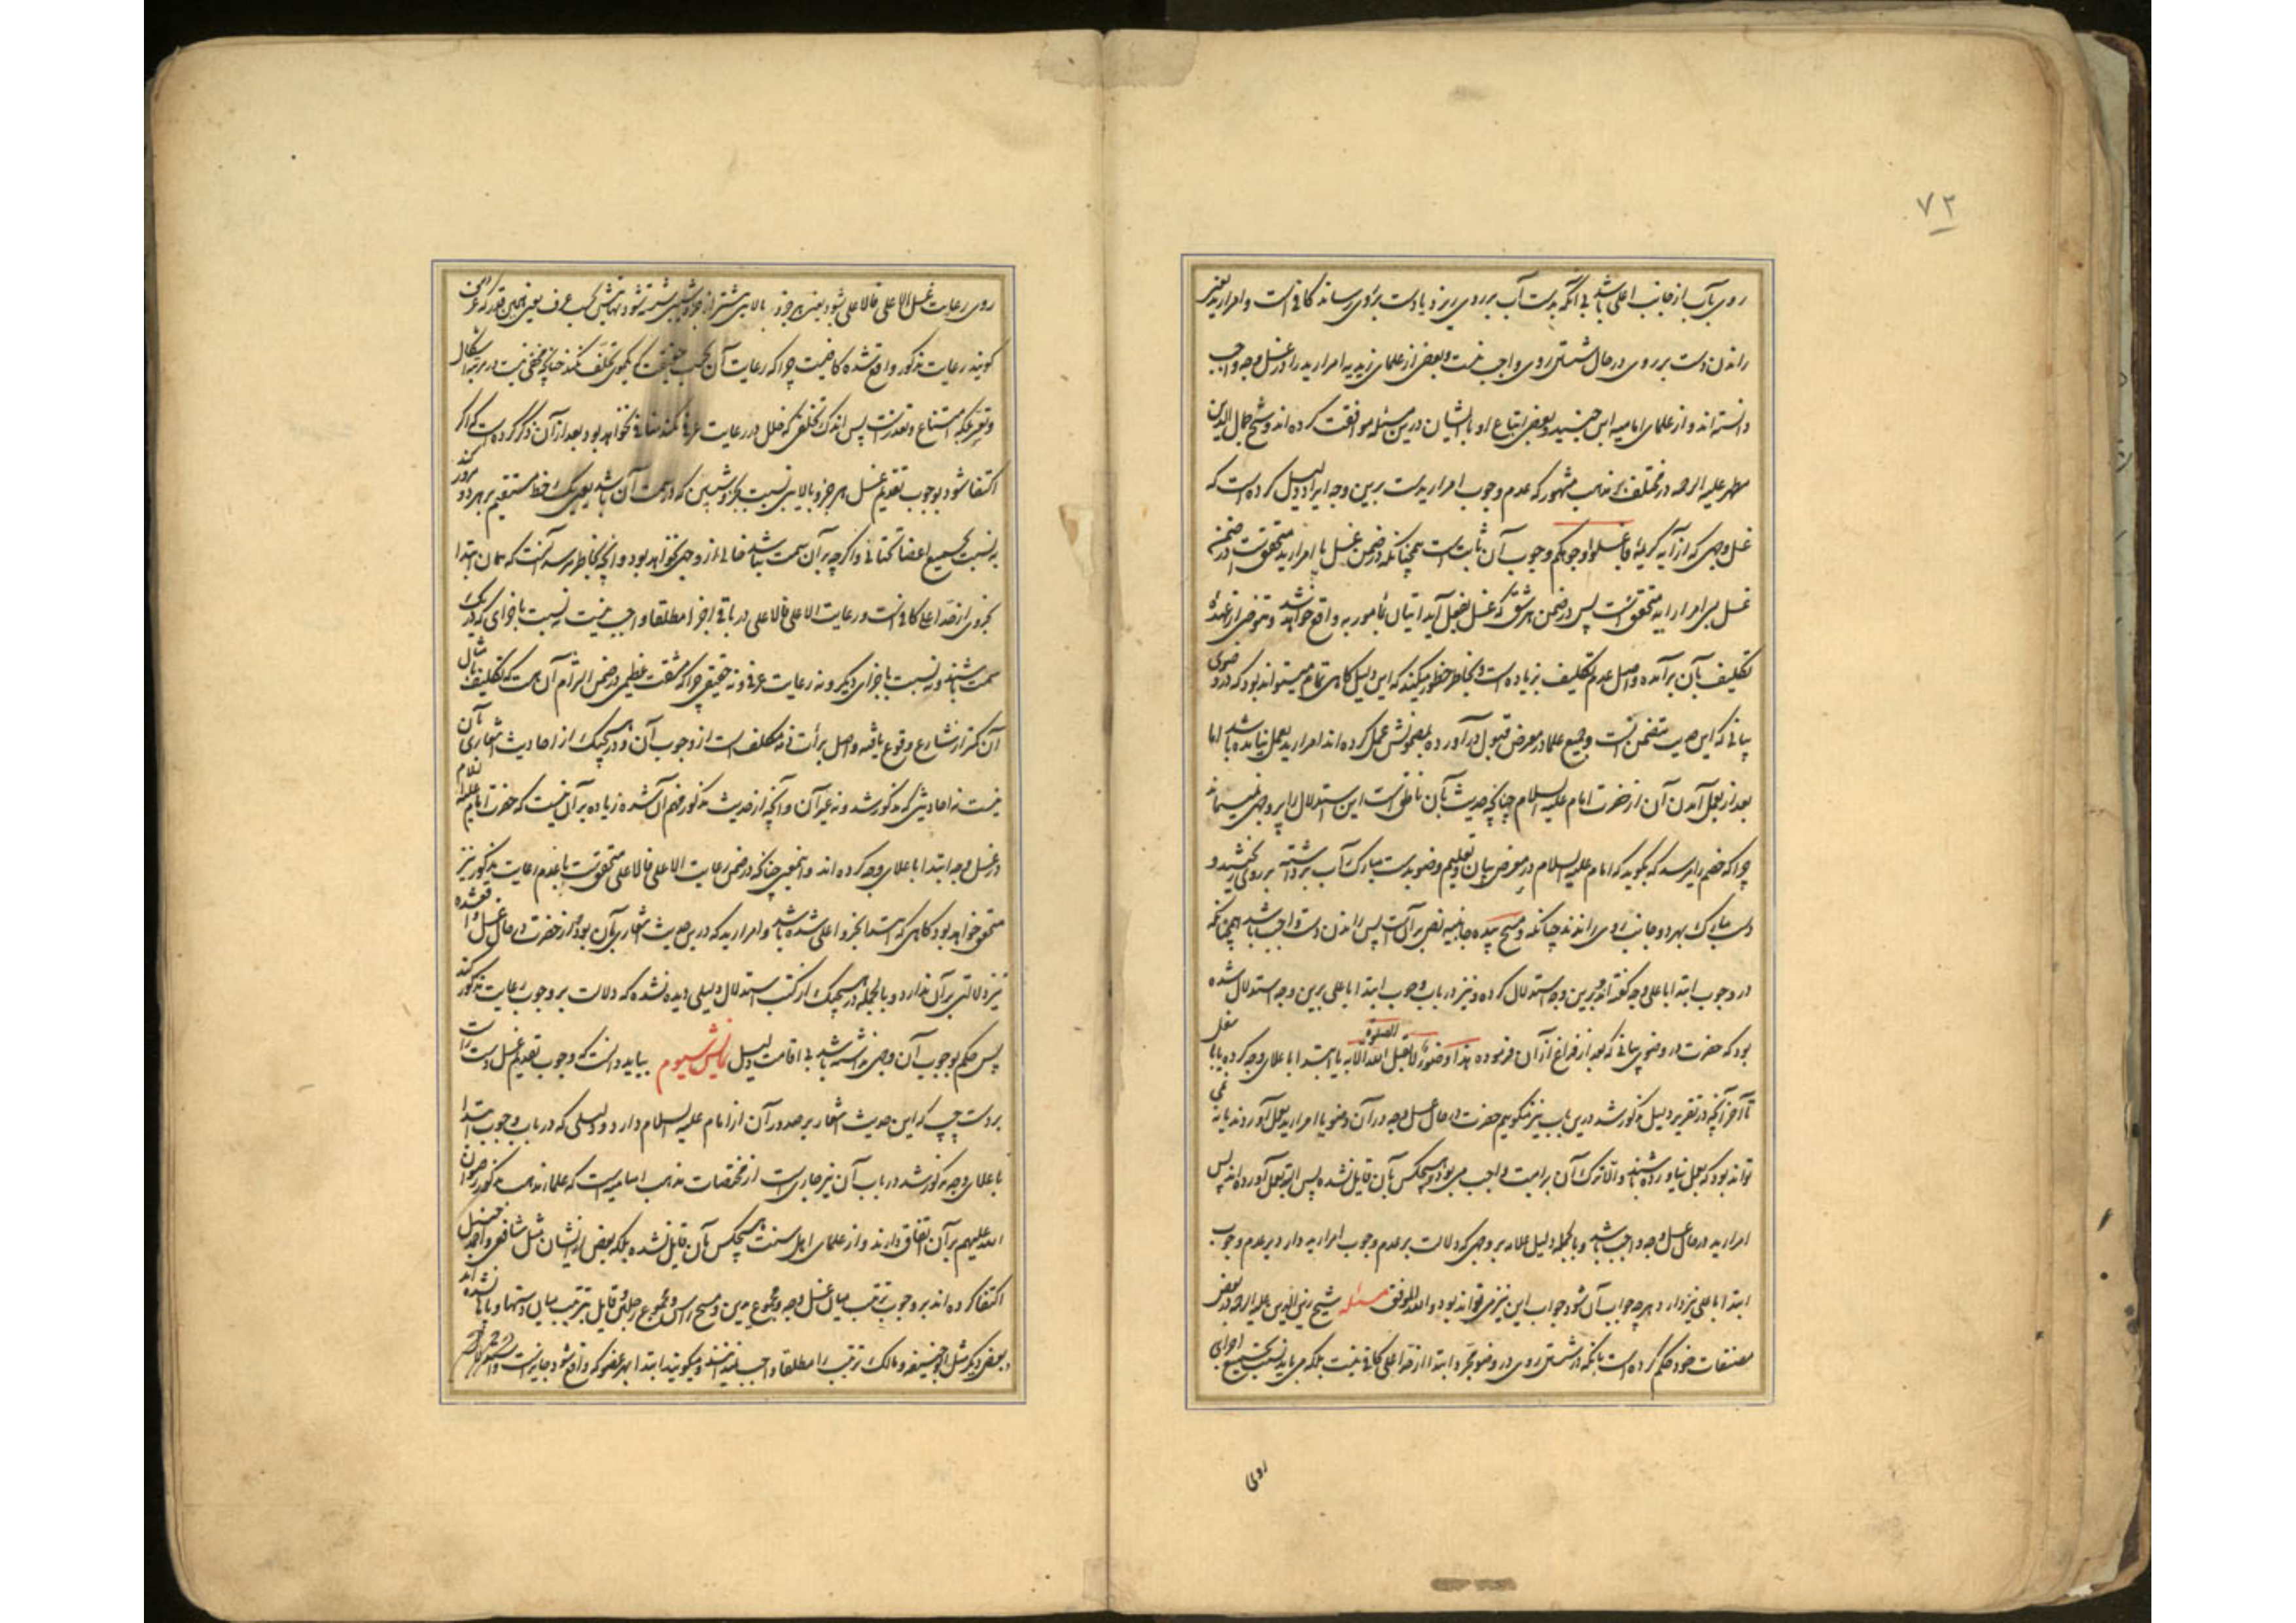 ۷۲
روی بآب از جانب اعلی باشد بی آنکه بدست آب بر روی ریزد یا دست بروی رساند کافی است و امرار ید یعنی
راندن دست بر روی در حال شستن روی واجب نیست و بعضی از علمای زیدیه امرار ید را در غسل وجه واجب
دانسته اند و از علمای امامیه ابن جنید و بعضی اتباع او با ایشان درین مسئله موافقت کرده اند و شیخ جمال الدین
مطهر علیه الرحمه در مختلف بر مذهب مشهور که عدم وجوب امرار یدست برین وجه ایراد دلیل کرده است که
غسل وجهی که از آیه کریمه فاغسلوا وجوهکم وجوب آن ثابت است همچنانکه در ضمن غسل با امرار ید متحقق است در ضمن
غسل بی امرار ید متحقق است پس در ضمن هر شق که غسل بفعل آید اتیان بمأمور به واقع خواهد شد و متوضی از عهده
تکلیف بآن برآمده و اصل عدم تکلیف بزیاده است و بخاطر خطور میکند که این دلیل گاهی تمام میتواند بود که در وضوی
بیانی که این حدیث متضمن آنست و جمیع علما در معرض قبول درآورده بمضمونش عمل کرده اند امرار ید بعمل نیامده باشد اما
بعد از بعمل آمدن آن از حضرت امام علیه السلام چنانچه حدیث بآن ناطق است این استدلال را وجهی نمیماند
چرا که خصم را میرسد که بگوید که امام علیه السلام در معرض بیان و تعلیم وضو بدست مبارک آب برداشته بر روی ریختند و
دست مبارک بهر دو جانب روی راندند چنانکه و مسح بیده جانبیه نص بر آنست پس راندن دست واجب باشد همچنانکه
در وجوب ابتدا باعلی وجه گفته اند و برین وجه استدلال کرده و نیز در باب وجوب ابتدا باعلی برین وجه استدلال شده
بود که حضرت در وضوی بیانی که بعد از فراغ از آن فرموده هذا وضوء لا یقبل الله الصلوة الا به یا ابتدا باعلای وجه کرده یا باسفل
تا آخر آنچه در تقریر دلیل مذکور شد درین باب نیز میگوییم حضرت در حال غسل وجه در آن وضو یا امرار ید بعمل آوردند یا نه نمی
تواند بود که بعمل نیاورده باشند و الا ترک آن برامت واجب می بود و هیچکس بآن قایل نشده پس البته بعمل آورده اند پس
امرار ید در حال غسل وجه واجب باشد و بالجمله دلیل علامه بر وجهی که دلالت بر عدم وجوب امرار ید دارد بر عدم وجوب
ابتدا باعلی نیز دارد و هر چه جواب آن شود جواب این نیز می تواند بود و الله الموفق مسئله شیخ زین الدین علیه الرحمه در بعض
مصنفات خود حکم کرده است بآنکه در شستن روی در وضو مجرد ابتدا از قدر اعلی کافی نیست بلکه می باید نسبت بجمیع اجزای
روی
روی رعایت غسل الاعلی فالاعلی شود یعنی هر جزو بالایی پیشتر از جزو شیبین شسته شود نهایتش بحسب عرف یعنی همین قدر که عرفا
گویند رعایت مذکور واقع شده کافیست چرا که رعایت آن بحسب حقیقت که یکموی تخلف نکند چنانچه مخفی نیست در مرتبه اشکال
و تعسر بلکه امتناع و تعذرست پس اندک تخلفی که خلل در رعایت عرفی نکند منافی نخواهد بود و بعد از آن ذکر کرده است که اگر
اکتفا شود بوجوب تقدیم غسل هر جزو بالایی نسبت بجزو شیبین که در سمت آن باشد یعنی یک خط مستقیم بر هر دو مرور کند
نه نسبت بجمیع اعضا تحتانی و اگر چه بر آن سمت نباشد خالی از وجهی نخواهد بود و آنچه بخاطر میرسد آنست که همان ابتدا
بجزوی از قدر اعلی کافی است و رعایت الاعلی فالاعلی در باقی اجزا مطلقا واجب نیست نه نسبت باجزای که در یک
سمت باشند و نه نسبت باجزای دیگر و نه رعایت عرفی و نه حقیقی چرا که مشقت عظیمی در ضمن التزام آن هست که تکلیف بامثال
آن کمتر از شارع وقوع یافته و اصل برأت ذمه مکلف است از وجوب آن و در هیچیک از احادیث اشعاری بآن
نیست نه احادیثی که مذکور شد و نه غیر آن و آنچه از حدیث مذکور فهم آن شده زیاده بر آن نیست که حضرت امام علیه السلام
در غسل وجه ابتدا باعلای وجه کرده اند و اینمعنی چنانکه در ضمن رعایت الاعلی فالاعلی متحقق است با عدم رعایت مذکور نیز
متحقق خواهد بود گاهی که ابتدا بجزو اعلی شده باشد و امرار ید که درین حدیث اشعاری بآن بود که از حضرت در حال غسل واقع شده
نیز دلالتی بر آن ندارد و بالجمله در هیچیک از کتب استدلال دلیلی دیده نشده که دلالت بر وجوب رعایت مذکور کند
پس حکم بوجوب آن وجهی نداشته باشد بی اقامت دلیل نمایش سیوم بباید دانست که وجوب تقدیم غسل دست راست
بر دست چپ که این حدیث اشعار بر صدور آن از امام علیه السلام دارد و دلیلی که در باب وجوب ابتدا
باعلای وجه مذکور شد در باب آن نیز جاری است از مختصات مذهب امامیه است که علماء مذهب مذکور رضوان
الله علیهم بر آن اتفاق دارند و از علمای اهل سنت هیچکس بآن قایل نشده بلکه بعضی از ایشان مثل شافعی و احمد حنبل
اکتفا کرده اند بر وجوب ترتیب میان غسل وجه و مجموع یدین و مسح راس و مجموع رجلین و قایل بترتیب میان دستها و پاها نشده اند
و بعضی دیگر مثل ابوحنیفه و مالک ترتیب را مطلقا واجب ندانند و میگویند ابتدا بهر عضو که واقع شود جایز است